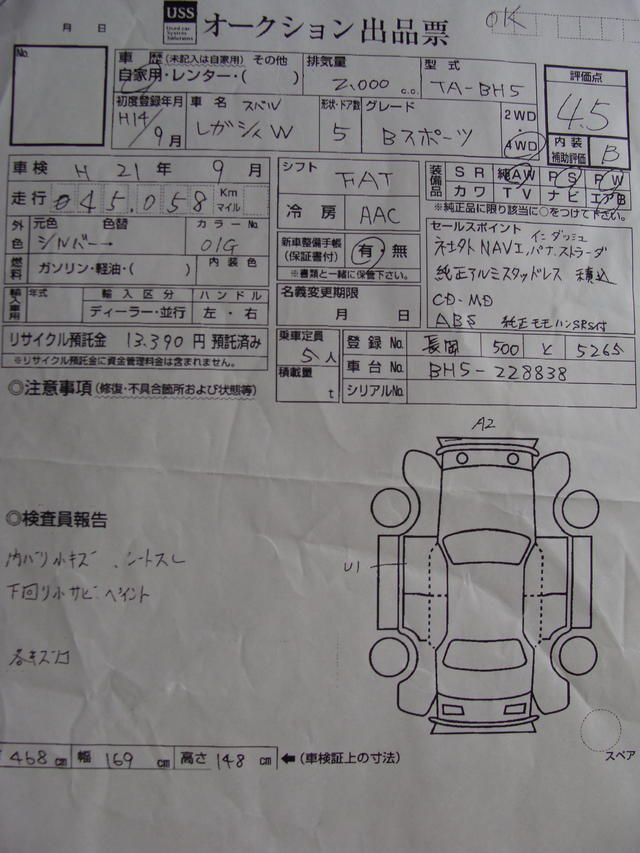 月 日
USS Used car System Solutions オークション出品票
OK
No.
車歴 (未記入は自家用) その他
自家用・レンター・( )
排気量
2.000 c.c.
型式
TA-BH5
評価点
4.5
初度登録年月
H14/9月
車名 スバル
レガシィW
形状・ドア数
5
グレード
Bスポーツ
2WD
4WD
内装補助評価
B
車検 H 21年 9月
走行 045.058 Km マイル
外色 元色 色替
シルバー→
カラーNo.
01G
燃料 ガソリン・軽油・( )
内装色
輸入車用 年式 輸入区分 ハンドル
ディーラー・並行 左・右
シフト
FAT
冷房 AAC
新車整備手帳 (保証書付) 有・無
※書類と一緒に保管下さい。
名義変更期限
月 日
装備品 SR 純AW PS PW
カワ TV ナビ エアB
※純正品に限り該当に○をつけて下さい。
セールスポイント インダッシュ
NAVI,パナ.ストラーダ
純正アルミスタッドレス 積込
CD-MD
ABS 純正モモハンSRS付
リサイクル預託金 13.390円 預託済み
※リサイクル預託金に資金管理料金は含まれません。
乗車定員
5人
積載量
t
登録No. 長岡 500 と 5265
車台No. BH5-228838
シリアルNo.
◎注意事項 (修復・不具合箇所および状態等)
A2
◎検査員報告
内バリ小キズ、シートスレ
U1
下回り小サビ ペイント
各キズ凹
468cm 幅 169cm 高さ 148cm ←(車検証上の寸法)
スペア